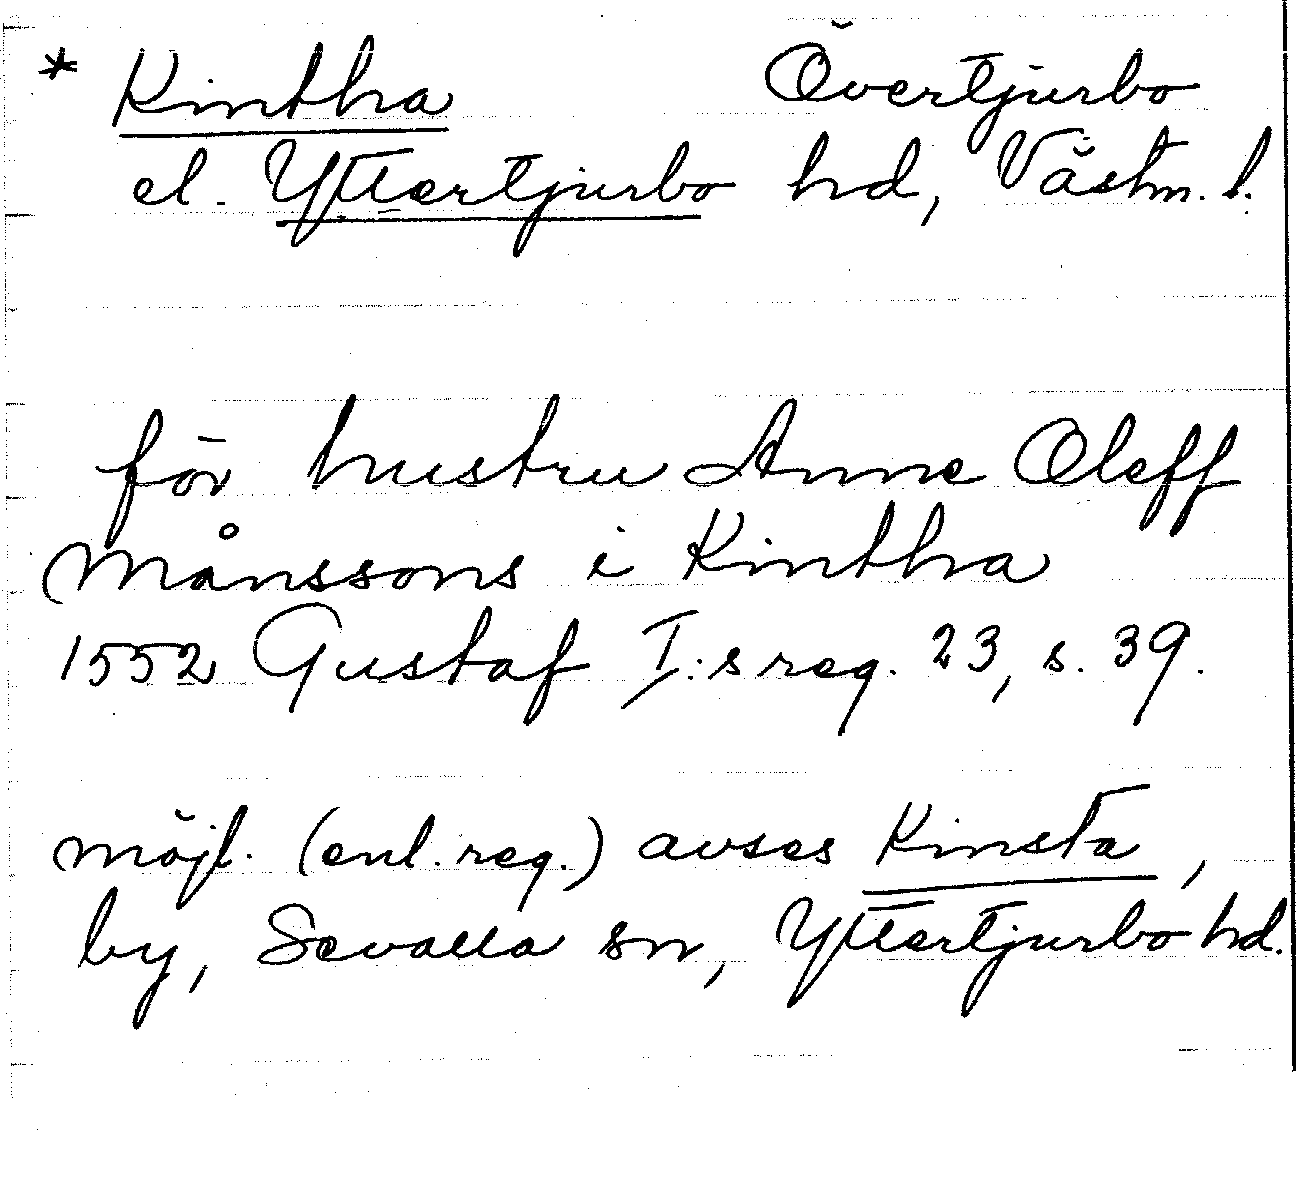 * Kintha Övertjurbo
el. Yttertjurbo hd, Västm. l.
för hustru Anne Oleff
Månssons i Kintha
1552 Gustaf I:s reg. 23, s. 39.
möjl. (enl. reg.) avses Kinsta,
by, Sevalla sn, Yttertjurbo hd.